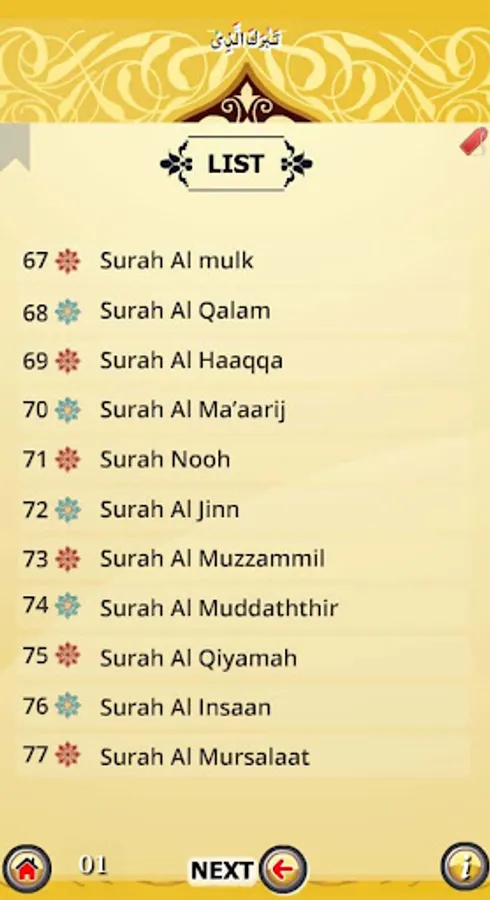 تَبٰرَكَ الَّذِیْ
LIST
67 Surah Al mulk
68 Surah Al Qalam
69 Surah Al Haaqqa
70 Surah Al Ma’aarij
71 Surah Nooh
72 Surah Al Jinn
73 Surah Al Muzzammil
74 Surah Al Muddaththir
75 Surah Al Qiyamah
76 Surah Al Insaan
77 Surah Al Mursalaat
01 NEXT i